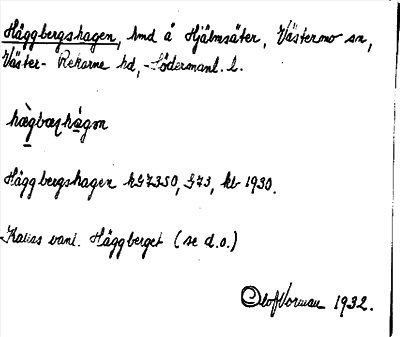 Häggbergshagen, lmd å Hjälmsäter, Västermo sn,
Väster-Rekarne hd, Södermanl. l.
hæ̀gbærhàgɘn
Häggbergshagen hG7350, G73, kb 1930.
Kallas vanl. Häggberget (se d.o.)
Olof Vorman 1932.